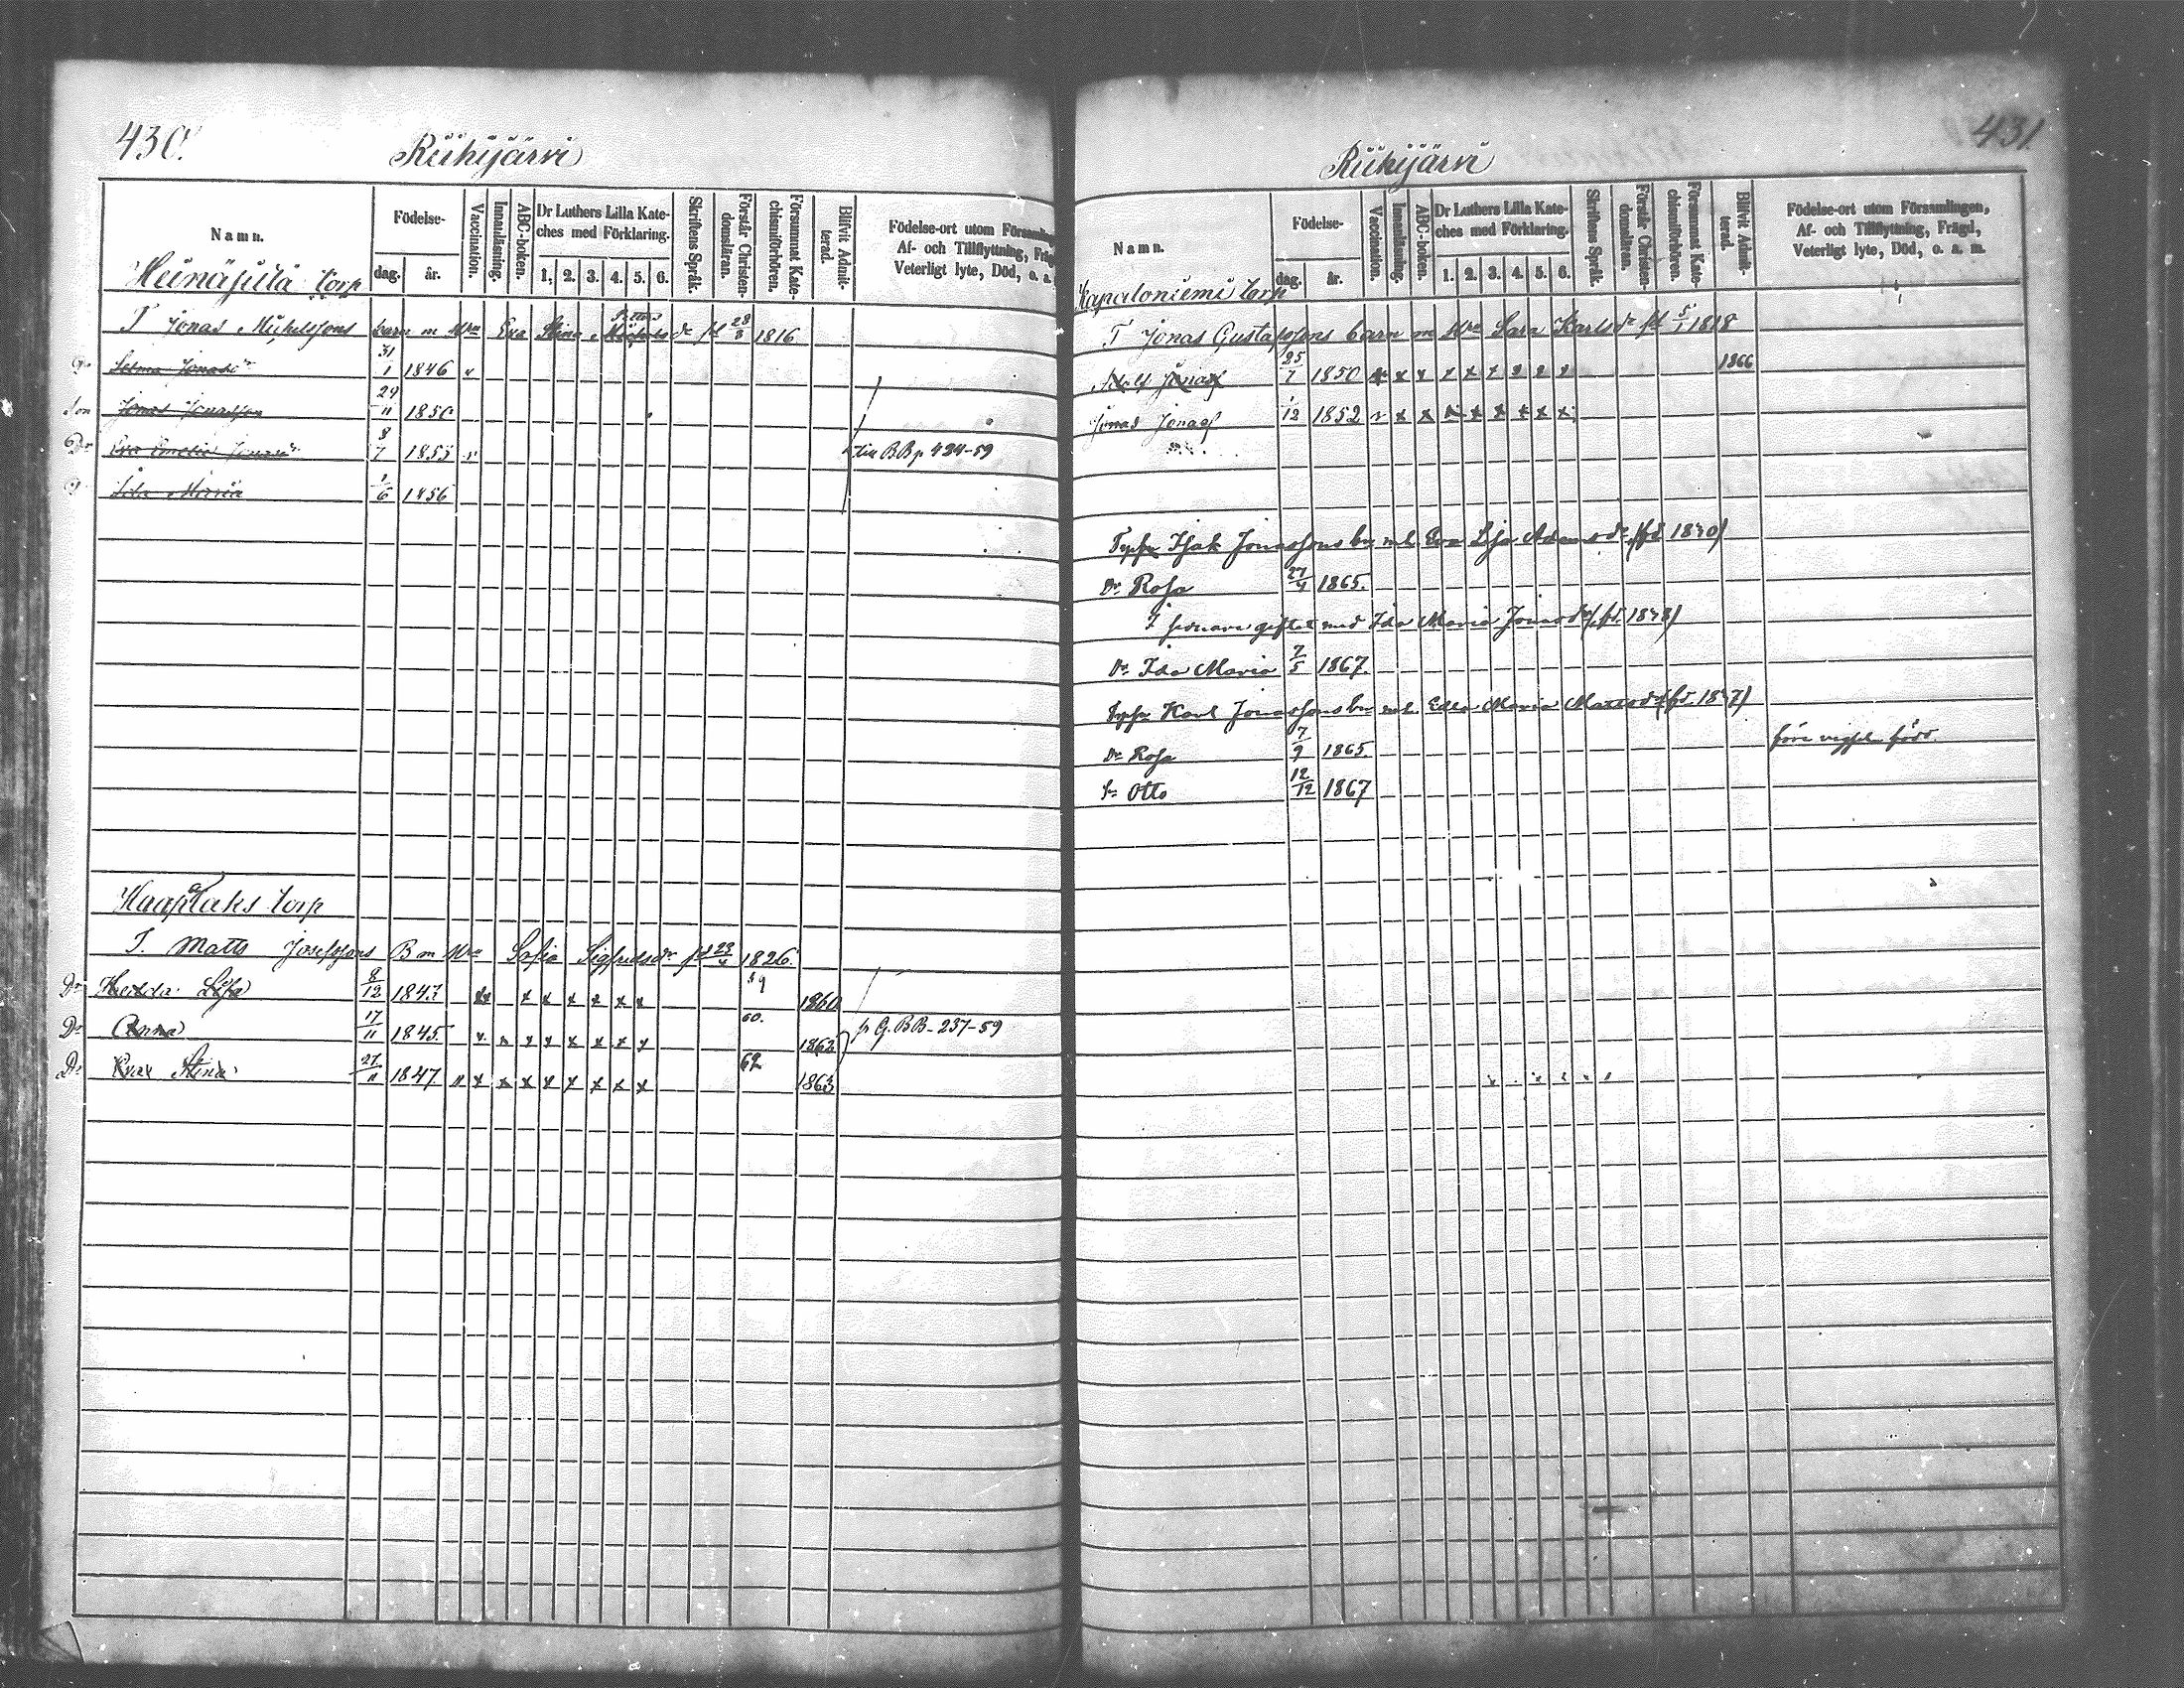 430.
Riihijärvi
Namn.
Födelse-
dag.
år.
Vaccination.
Innanläsning.
ABC-boken.
Dr Luthers Lilla Kate-
ches med Förklaring.
1. 2. 3. 4. 5. 6.
Skriftens Språk.
Förstår Christen-
domsläran.
Försummat Kate-
chismiförhören.
Blifvit Admit-
terad.
Födelse-ort utom Församling
Af- och Tillflyttning, Fräg
Veterligt lyte, Död, o. a.
Heinäsilta torp
T Jonas Michelssons barn m Hru Eva Stina fd 28/8 1816
Dr Selma Jonasdr 31/1 1846
Son Jonas Jonasson 29/11 1850
Dr Eva Emelie Jonasdr 8/7 1853 till BB p 424-59
Ida Maria 1/6 1856
Haapalaks torp
T. Matts Josefssons B m Hru Sofia Sigfridsdr fd 23/4 1826.
Dr Hedda Lisa 8/12 1843 x x x x x x 59 1860
Dr Anna 17/11 1845 x x x x x x 60. 1862 p G. BB-237-59
Dr Eva Stina 27/11 1847 x x x x x x x x 62 1863
431
Riihijärvi
Namn.
Födelse-
dag.
år.
Vaccination.
Innanläsning.
ABC-boken.
Dr Luthers Lilla Kate-
ches med Förklaring.
1. 2. 3. 4. 5. 6.
Skriftens Språk.
Förstår Christen-
domsläran.
Försummat Kate-
chismiförhören.
Blifvit Admit-
terad.
Födelse-ort utom Församlingen,
Af- och Tillflyttning, Frägd,
Veterligt lyte, Död, o. a. m.
Kapaloniemi torp
T Jonas Gustafssons barn m Hru Sara Karlsdr fd 5/1 1818
Adolf Jonass 25/7 1850 x x x x x x x x 1866
Jonas Jonass 1/12 1852 x x x x x x x x
Isak Jonassons bn m. Eva Lisa Adamsdr (fd 1840)
Dr Rosa 27/4 1865.
I senare giftet med Ida Maria Jonasdr (fd. 1848)
Dr Ida Maria 7/5 1867.
Karl Jonassons bn m. Edla Maria Mattsdr (fd. 1847)
Dr Rosa 7/9 1865. före vigseln född.
Sn Otto 12/12 1867